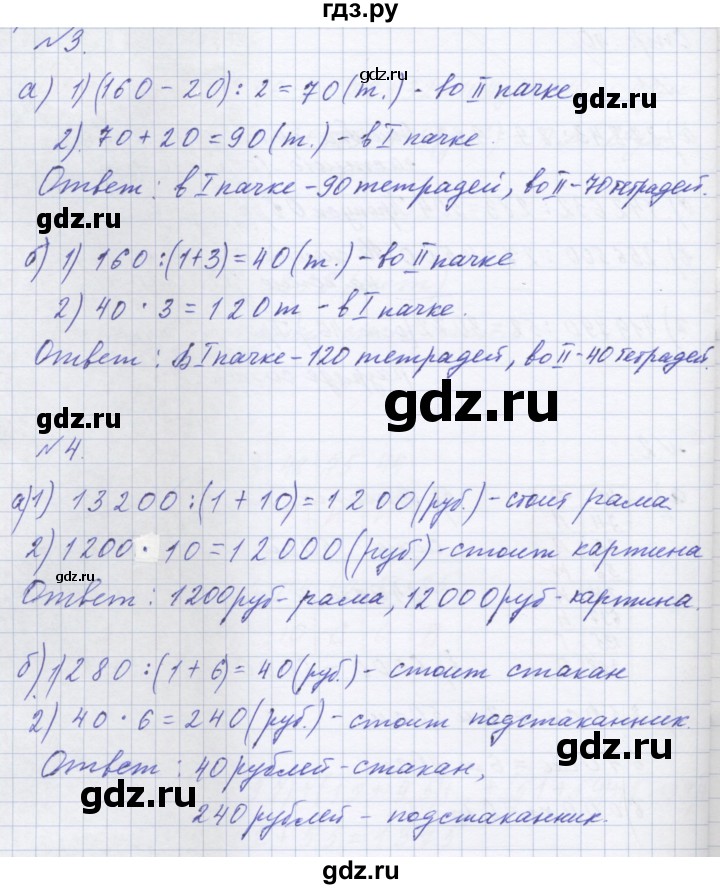 гдз.ру
№3.
а) 1) (160 - 20) : 2 = 70 (т.) - во II пачке
gdz.ru
2) 70 + 20 = 90 (т.) - в I пачке.
Ответ : в I пачке - 90 тетрадей, во II - 70 тетрадей.
gdz.ru
б) 1) 160 : (1+3) = 40 (т.) - во II пачке
2) 40 · 3 = 120 т - в I пачке.
Ответ : в I пачке - 120 тетрадей, во II - 40 тетрадей.
gdz.ru
gdz.ru
№4.
а) 1) 13200 : (1 + 10) = 1200 (руб.) - стоит рама.
2) 1200 · 10 = 12000 (руб.) - стоит картина
gdz.ru
Ответ : 1200 руб - рама, 12000 руб - картина.
gdz.ru
б) 1) 280 : (1 + 6) = 40 (руб.) - стоит стакан
2) 40 · 6 = 240 (руб.) - стоит подстаканник.
gdz.ru
Ответ : 40 рублей - стакан,
gdz.ru
240 рублей - подстаканник.
gdz.ru